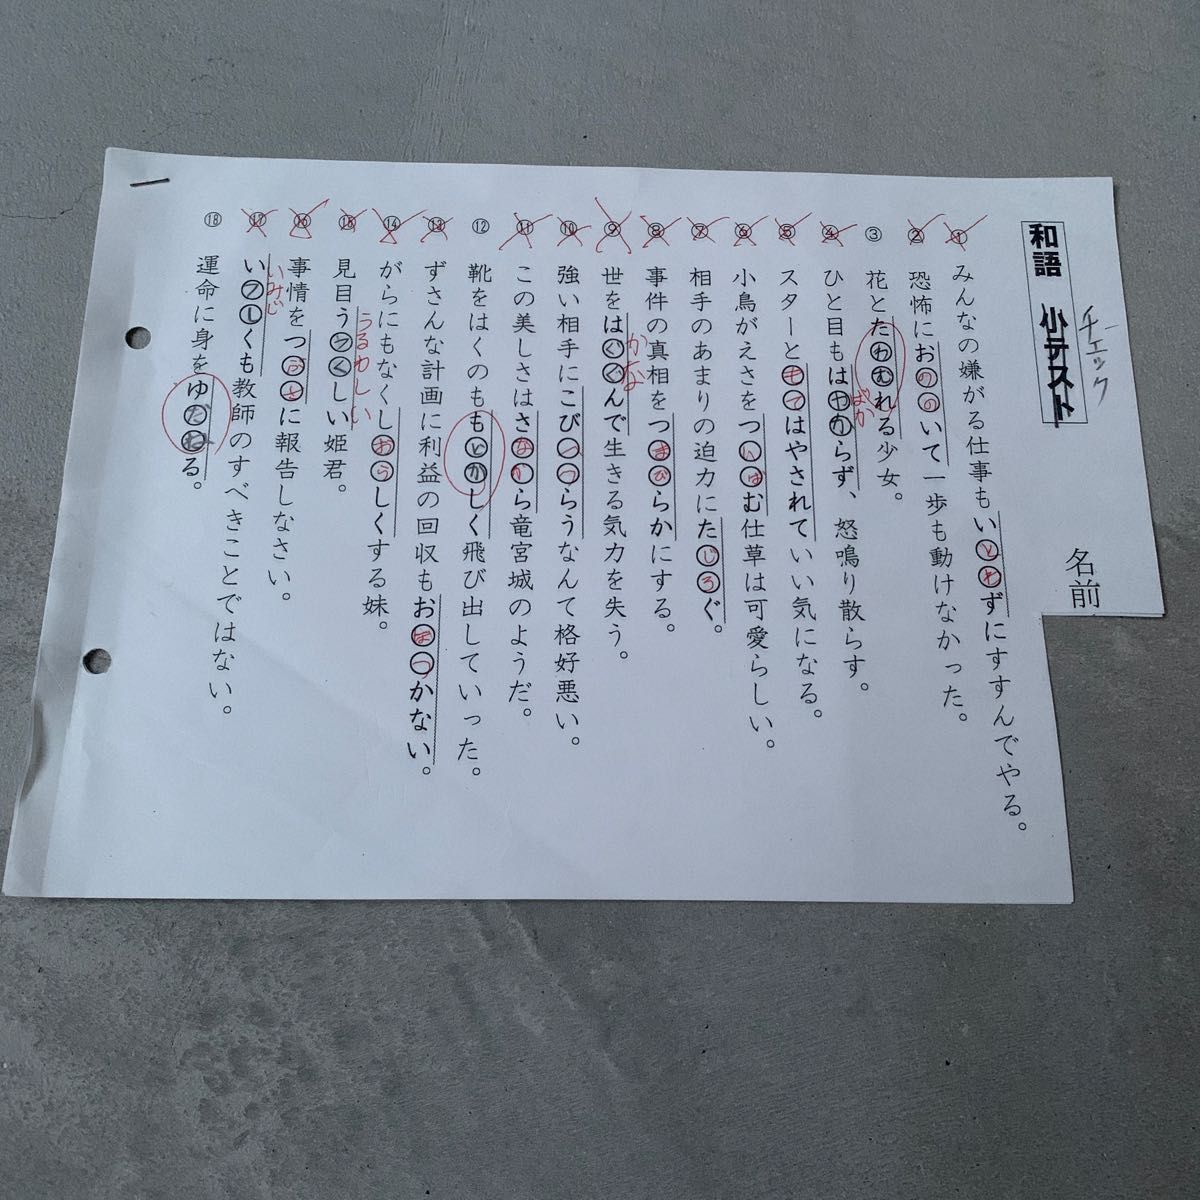 和語 小テスト
チェック
名前
① みんなの嫌がる仕事もいとわずにすすんでやる。
② 恐怖におののいて一歩も動けなかった。
③ 花とたわむれる少女。
④ ひと目もはヤからず、怒鳴り散らす。
ばか
⑤ スターともてはやされていい気になる。
⑥ 小鳥がえさをついばむ仕草は可愛らしい。
⑦ 相手のあまりの迫力にたじろぐ。
⑧ 事件の真相をつまびらかにする。
⑨ 世をはくくんで生きる気力を失う。
かな
⑩ 強い相手にこびへつらうなんて格好悪い。
⑪ この美しさはさながら竜宮城のようだ。
⑫ 靴をはくのももどかしく飛び出していった。
⑬ ずさんな計画に利益の回収もおぼつかない。
⑭ がらにもなくしおらしくする妹。
⑮ 見目うつくしい姫君。
うるわしい
⑯ 事情をつぶさに報告しなさい。
⑰ いアしくも教師のすべきことではない。
いみじ
⑱ 運命に身をゆだねる。